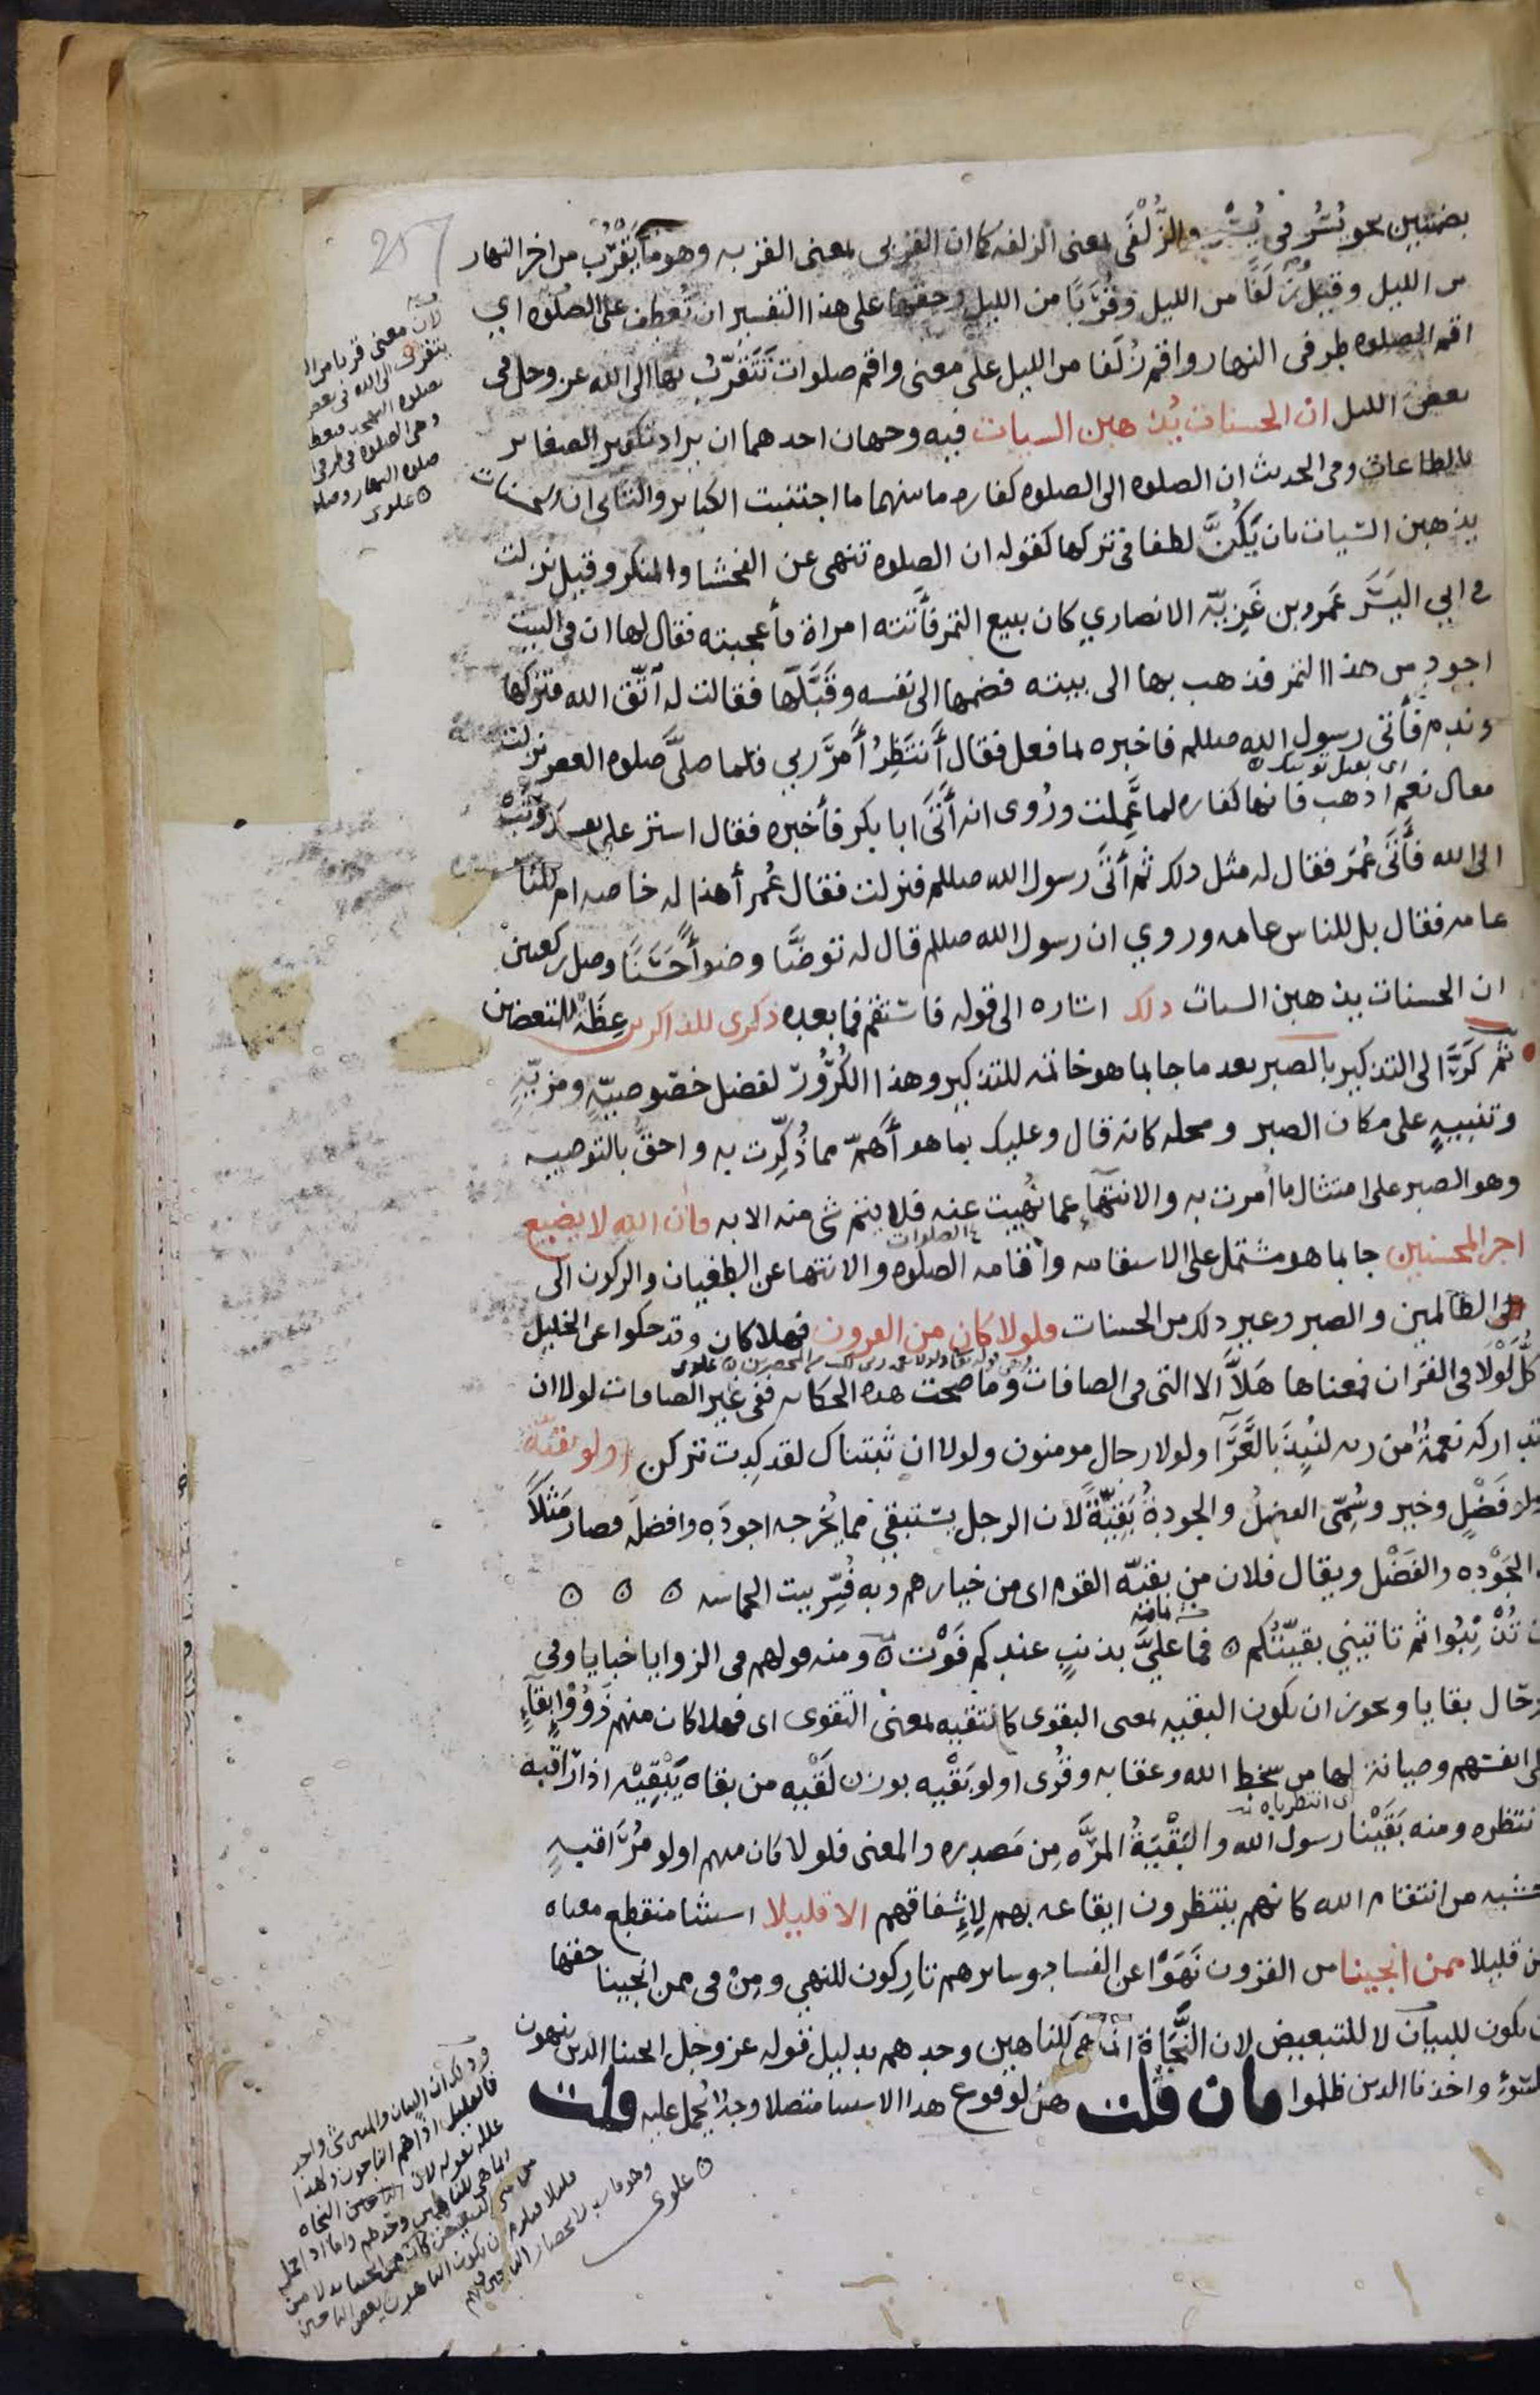 257
بضمتين نحو بُسُر فى بُسْر والزُّلْفَى بمعنى الزلفه كما ان القربى بمعنى القربه وهو ما يَقْرُب من اخر النهار
من الليل وقيل زُلَفًا من الليل وقُرَبًا من الليل وحقها على هذا التفسير ان تُعطف على الصلوه اي
اقم الصلوه طرفى النهار واقم زُلَفا من الليل على معنى واقم صلوات تَتَقرّبُ بها الى الله عز وجل فى
بعض الليل ان الحسنات يُذهبن السيات فيه وجهان احدهما ان يراد تكفير الصغاير
بالطاعات وفى الحديث ان الصلوه الى الصلوه كفاره ما بينهما ما اجتنبت الكباير والثانى ان الحسنات
يذهبن السَّيات بان يَكُنَّ لطفا فى تركها كقوله ان الصلوه تنهى عن الفحشا والمنكر وقيل نزلت
فى ابي اليَسَر عَمرو بن غَزِيّه الانصاري كان يبيع التمر فأتته امراة فأعجبته فقال لها ان فى البيت
اجود من هذا التمر فذهب بها الى بيته فضمها الى نفسه وقَبَّلَها فقالت له اتّق الله فتركها
وندم فأتى رسول الله صللم فاخبره بما فعل فقال أنتَظِرُ أمرَ ربي فلما صلَّى صلوه العصر نزلت
فقال نعم اذهب فانها كفاره لما عَمِلت ورُوى انه أتَى ابا بكر فأخبره فقال استر على نفسك وتُب
الى الله فأتَى عُمَر فقال له مثل ذلك ثم أتَى رسول الله صللم فنزلت فقال عُمر أهذا له خاصه ام للناس
عامه فقال بل للناس عامه وروي ان رسول الله صللم قال له توضَّا وضوأ حَسَنًا وصل ركعتين
ان الحسنات يذهبن السيات ذلك اشاره الى قوله فاستقم فما بعده ذكرى للذاكرين عِظَة للمتعظين
ثم كَرَّ الى التذكير بالصبر بعد ما جا بما هو خاتمه للتذكير وهذا الكُرُورُ لفضل خصُوصِيّةٍ ومزيّةٍ
وتنبيهٍ على مكان الصبر ومحله كانه قال وعليك بما هو أهَمّ مما ذُكِّرت به واحقّ بالتوصيه
وهو الصبر على امتثال ما اُمرت به والانتهاء عما نُهيت عنه فلا يتم شى منه الا به فان الله لا يضيع
اجر المحسنين جا بما هو مشتمل على الاستقامه واقامه الصلوه والانتها عن الطغيان والركون الى
الظالمين والصبر وغير ذلك من الحسنات فلولا كان من القرون فهلا كان وقد حكوا عن الخليل
كلُّ لَوْلَا فى القران فمعناها هَلاَّ الا التى فى الصافات وما صحت هذه الحكايه ففى غير الصافات لولا ان
تداركه نعمةٌ من ربه لنُبِذَ بالعَرَا ولولا رجال مومنون ولولا ان ثبتناك لقد كِدت تركن اولو بقيّة
اولو فَضْلٍ وخير وسُمّى الفضلُ والجودةُ بَقِيّةً لان الرجل يستبقي مما يُخرجه اجودَه وافضلَه فصار مَثَلاً
فى الجَوْده والفَضْل ويقال فلان من بقيّه القوم اى من خيارهم وبه فُسِّر بيت الحماسه
ان تُذْنِبُوا ثم تاتيني بقيّتُكم فما عليَّ بذنبٍ عندكم فَوْت ومنه قولهم فى الزوايا خبايا وفى
الرجال بقايا ويجوز ان يكون البقيه بمعنى البقوى كالتقيه بمعنى التقوى اى فهلا كان منهم ذَوُوْا بقآءٍ
على انفسهم وصيانة لها من سخط الله وعقابه وقُرى اولو بَقْيه بوزن لَقْيه من بقاه يَبْقِيْه اذا راقبه
وانتظره ومنه بَقَيْنا رسول الله والبَقْيَةُ المَرَّه مِن مَصدره والمعنى فلولا كان منهم اولو مُرَاقبةٍ
وخشيه من انتقام الله كانهم ينتظرون ايقاعه بهم لإشفاقهم الا قليلا استثنا منقطع معناه
ولكن قليلا ممن انجينا من القرون نَهَوْا عن الفساد وسايرهم تارِكون للنهي ومِن فى ممن انجينا حقها
ان يكون للبيان لا للتبعيض لان النَّجَاة انما هى للناهين وحدهم بدليل قوله عز وجل انجينا الذين ينهون
عن السّوء واخذنا الذين ظلموا فان قلت هل لوقوع هذا الاستثنا متصلا وجهٌ يُحمل عليه قلت
علوى